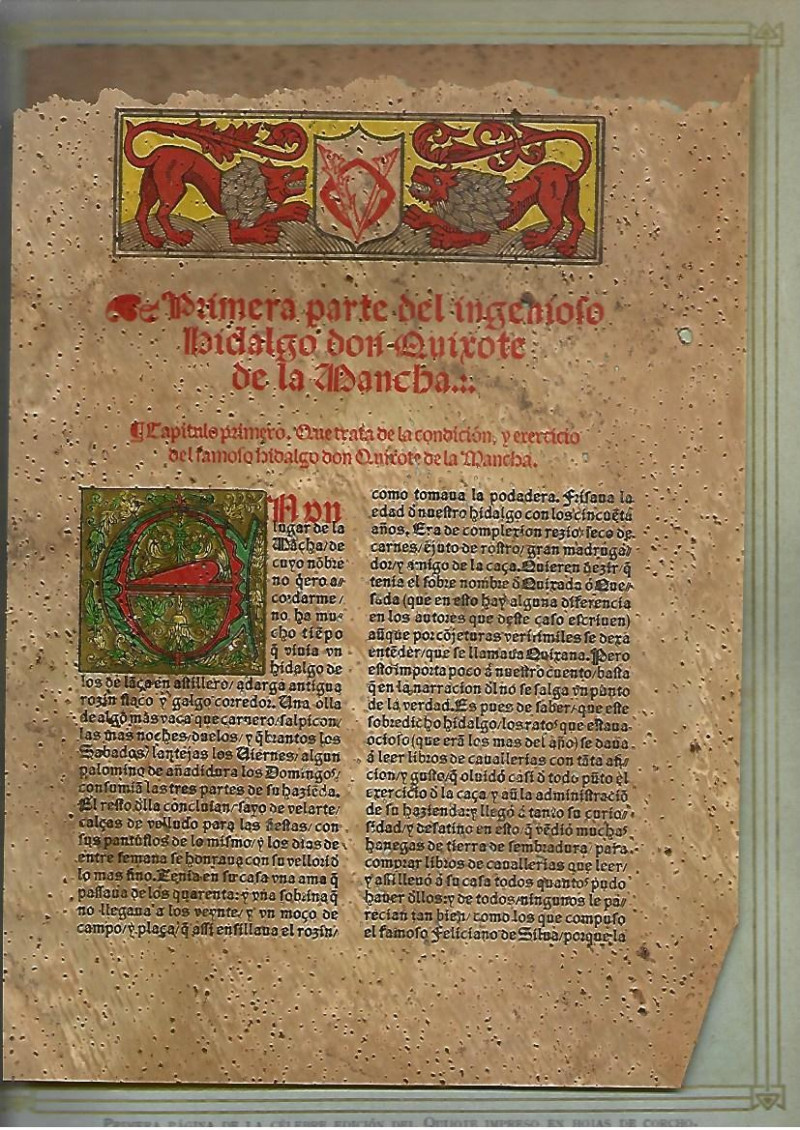 Primera parte del ingenioso
hidalgo don Quixote
de la Mancha.:.
¶ Capitulo primero. Que trata de la condición, y exercicio
del famoso hidalgo don Quixote de la Mancha.
EN vn
lugar de la
Mãcha/de
cuyo nõbre
no q̃ero a-
cordarme/
no ha mu-
cho tiẽpo
q̃ viuia vn
hidalgo de
los de lãça en astillero/adarga antigua
rozin flaco y galgo corredor. Una olla
de algo más vaca que carnero/salpicon/
las mas noches/duelos/y q̃brantos los
Sabados/lantejas los Uiernes/algun
palomino de añadidura los Domingos/
consumiã las tres partes de su haziẽda.
El resto dlla concluian/sayo de velarte/
calças de velludo para las fiestas/con
sus pantuflos de lo mismo/y los dias de
entre semana se honraua con su vellorí d
lo mas fino. Tenia en su casa vna ama q̃
passaua de los quarenta: y vna sobrina q̃
no llegaua a los veynte/y vn moço de
campo/y plaça/q̃ assi ensillaua el rozin/
como tomaua la podadera. Frisaua la
edad d nuestro hidalgo con los cincuẽta
años. Era de complexion rezio/seco de
carnes/ẽjuto de rostro/gran madruga-
dor/y amigo de la caça. Quieren dezir q̃
tenia el sobre nombre d Quixada ó Que-
sada (que en esto hay alguna diferencia
en los autores que deste caso escriuen)
aũque por cõjeturas verisimiles se dexa
entẽder/que se llamaua Quixana. Pero
esto importa poco á nuestro cuento/basta
q̃ en la narracion dl no se salga vn punto
de la verdad. Es pues de saber/que este
sobredicho hidalgo/los ratos que estaua
ocioso (que erã los mas del año) se daua
á leer libros de cauallerias con tãta afi-
cion/y gusto/q̃ olvidó casi d todo pũto el
exercicio d la caça y aũ la administraciõ
de su hazienda: y llegó á tanto su curio-
sidad/y desatino en esto/q̃ vẽdió muchas
hanegas de tierra de sembradura/para
comprar libros de cauallerias que leer/
y assi lleuó á su casa todos quantos pudo
hauer dllos: y de todos/ningunos le pa-
recian tan bien/como los que compuso
el famoso Feliciano de Silua/porque la
Primera página de la célebre edición del Quijote impreso en hojas de corcho.